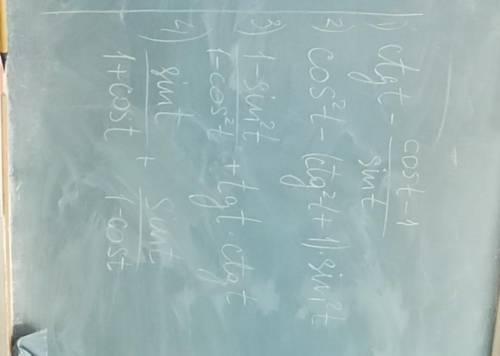 1) ctgt - (cost-1)/sint
2) cos²t - (ctg²t+1)·sin²t
3) (1-sin²t)/(1-cos²t) + tgt·ctgt
4) sint/(1+cost) + sint/(1-cost)